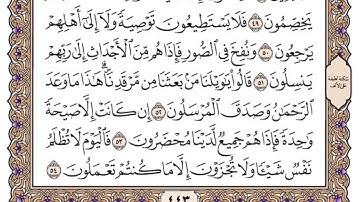 يَخِصِّمُونَ ٤٩ فَلَا يَسْتَطِيعُونَ تَوْصِيَةً وَلَآ إِلَىٰٓ أَهْلِهِمْ
يَرْجِعُونَ ٥٠ وَنُفِخَ فِى ٱلصُّورِ فَإِذَا هُم مِّنَ ٱلْأَجْدَاثِ إِلَىٰ رَبِّهِمْ
يَنسِلُونَ ٥١ قَالُوا۟ يَٰوَيْلَنَا مَنۢ بَعَثَنَا مِن مَّرْقَدِنَا ۜ ۗ هَٰذَا مَا وَعَدَ
ٱلرَّحْمَٰنُ وَصَدَقَ ٱلْمُرْسَلُونَ ٥٢ إِن كَانَتْ إِلَّا صَيْحَةً
وَٰحِدَةً فَإِذَا هُمْ جَمِيعٌ لَّدَيْنَا مُحْضَرُونَ ٥٣ فَٱلْيَوْمَ لَا تُظْلَمُ
نَفْسٌ شَيْـًٔا وَلَا تُجْزَوْنَ إِلَّا مَا كُنتُمْ تَعْمَلُونَ ٥٤
٤٤٣